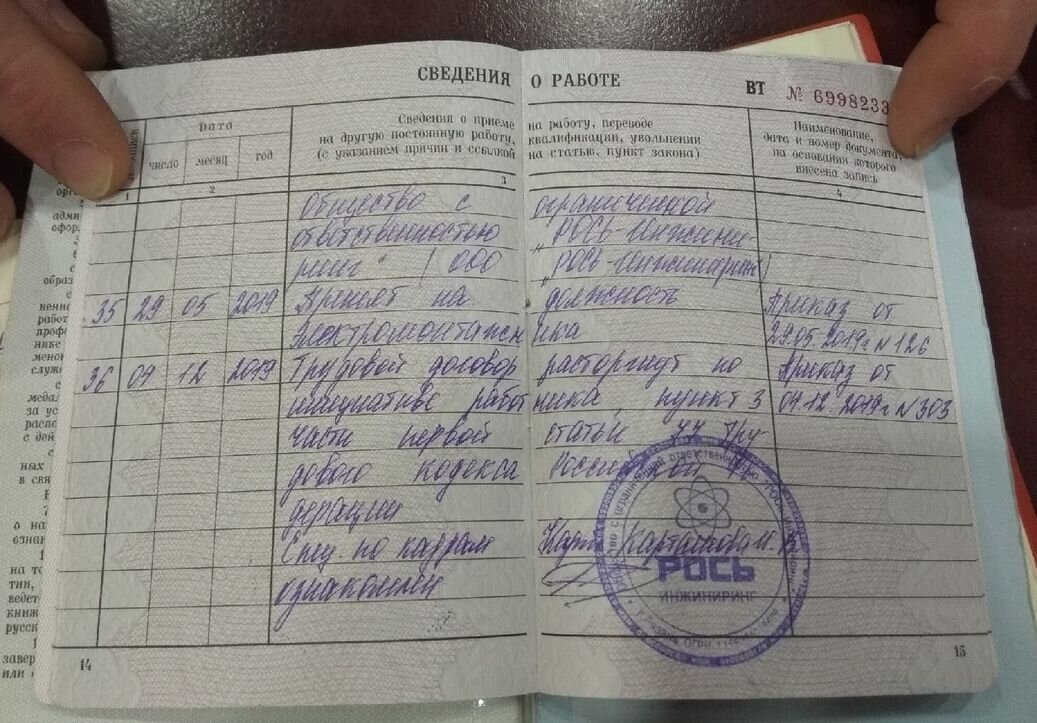 СВЕДЕНИЯ О РАБОТЕ
ВТ № 6998233
Дата
число месяц год
Сведения о приеме на работу, переводе
на другую постоянную работу, квалификации, увольнении
(с указанием причин и ссылкой на статью, пункт закона)
Наименование,
дата и номер документа,
на основании которого
внесена запись
1 2 3 4
Общество с ограниченной
ответственностью "РОСЬ-Инжини
ринг" / ООО "РОСЬ-Инжиниринг
35 29 05 2019 Принят на должность Приказ от
электромонтажника 29.05.2019г N 126
36 04 12 2019 Трудовой договор расторгнут по Приказ от
инициативе работника, пункт 3 04.12.2019г N 303
части первой статьи 77 Тру
дового кодекса Российской Фе
дерации
Спец. по кадрам
ознакомлен
РОСЬ
ИНЖИНИРИНГ
14
15